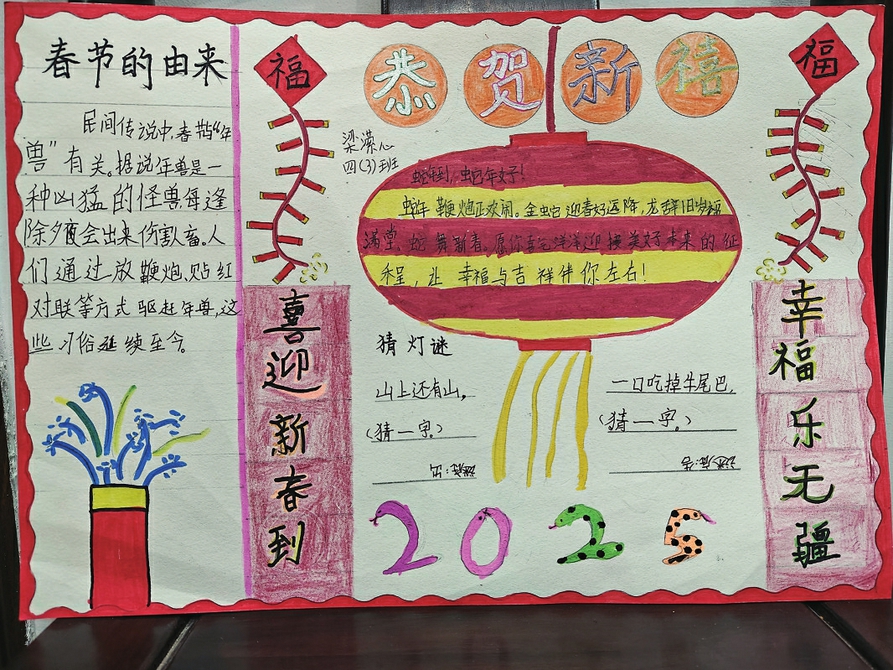 春节的由来
民间传说中,春节与“年
兽”有关。据说年兽是一
种凶猛的怪兽每逢
除夕夜会出来伤害人畜。人
们通过放鞭炮,贴红
对联等方式驱赶年兽,这
些习俗延续至今。
福
喜迎新春到
恭贺新禧
梁濴心
四(3)班
蛇年到,蛇年好!
蛇年鞭炮正欢闹。金蛇迎春好运降,龙辞旧岁福
满堂,蛇舞新春。愿你喜气洋洋迎接美好未来的征
程,让幸福与吉祥伴你左右!
猜灯谜
山上还有山,
(猜一字。)
谜底:出
一口吃掉牛尾巴,
(猜一字。)
谜底:告
2025
福
幸福乐无疆